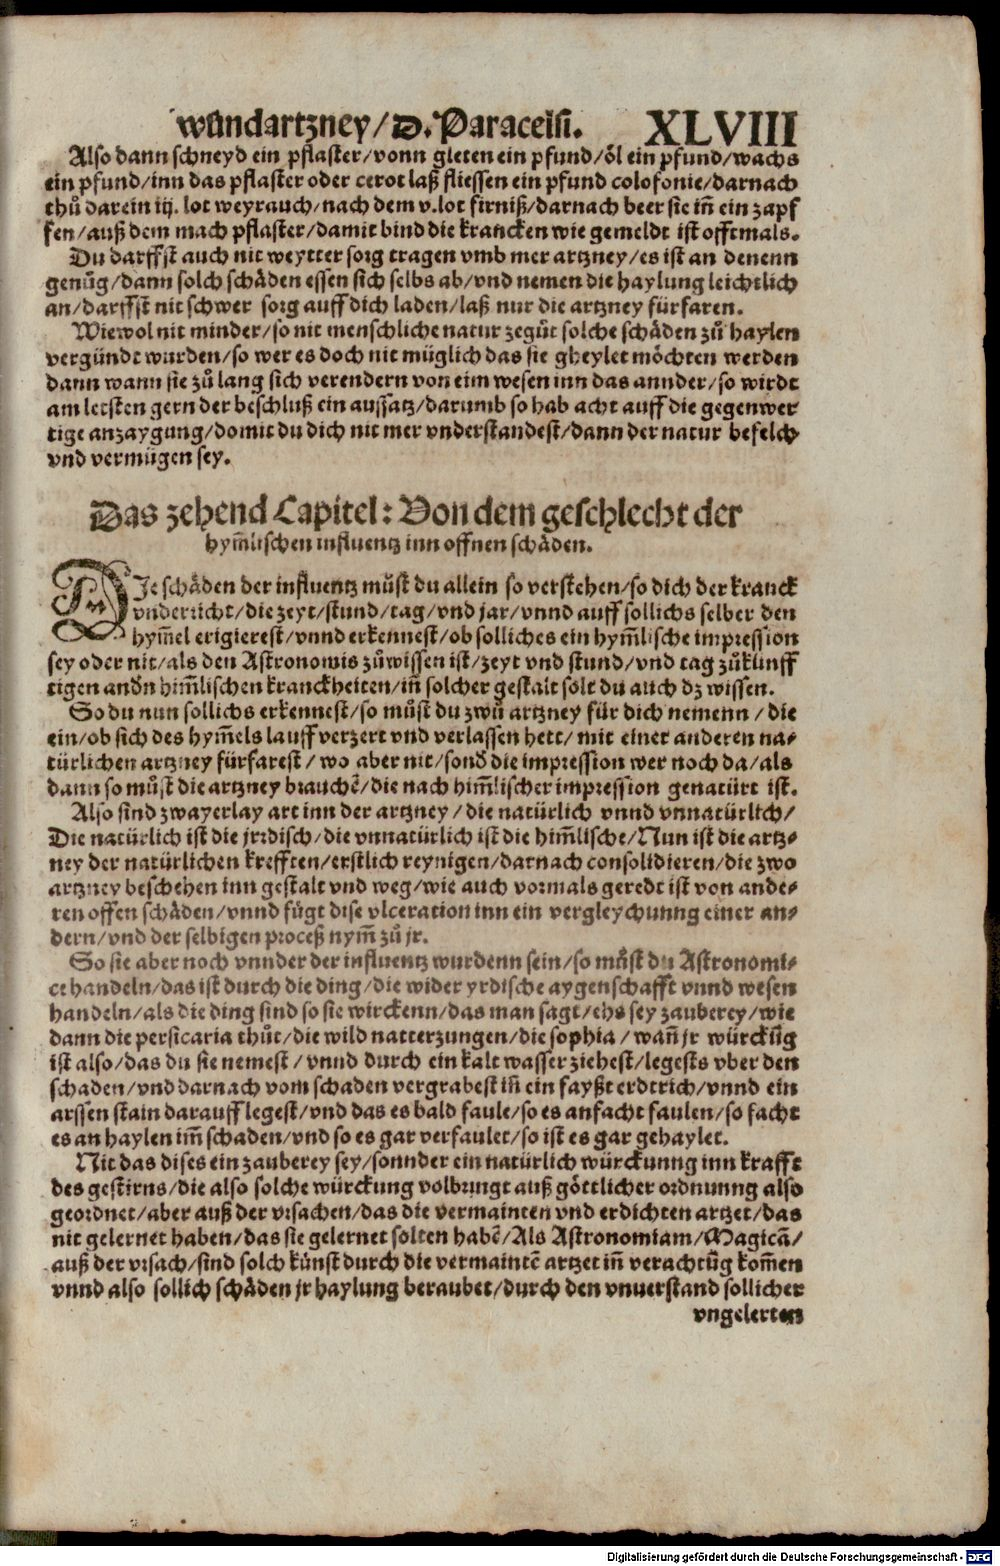 wundartzney/D. Paracelsi. XLVIII
Also dann schneyd ein pflaster/vonn gleten ein pfund/öl ein pfund/wachs
ein pfund/inn das pflaster oder cerot laß fliessen ein pfund colofonie/darnach
thuͦ darein iij. lot weyrauch/nach dem v.lot firniß/darnach beer sie in̄ ein zapf
fen/auß dem mach pflaster/damit bind die krancken wie gemeldt ist offtmals.
Du darffst auch nit weytter sorg tragen vmb mer artzney/es ist an denenn
genuͦg/dann solch schäden essen sich selbs ab/vnd nemen die haylung leichtlich
an/darffst nit schwer sorg auff dich laden/laß nur die artzney fürfaren.
Wiewol nit minder/so nit menschliche natur zeguͦt solche schäden zuͦ haylen
vergündt wurden/so wer es doch nit müglich das sie gheylet möchten werden
dann wann sie zuͦ lang sich verendern von eim wesen inn das annder/so wirdt
am letsten gern der beschluß ein aussatz/darumb so hab acht auff die gegenwer
tige anzaygung/domit du dich nit mer vnderstandest/dann der natur befelch
vnd vermügen sey.
Das zehend Capitel: Von dem geschlecht der
hym̄lischen influentz inn offnen schäden.
DIe schäden der influentz muͦst du allein so verstehen/so dich der kranck
vnderricht/die zeyt/stund/tag/vnd jar/vnnd auff sollichs selber den
hym̄el erigierest/vnnd erkennest/ob solliches ein hym̄lische impression
sey oder nit/als den Astronomis zuͦwissen ist/zeyt vnd stund/vnd tag zuͦkünff
tigen andn̄ him̄lischen kranckheiten/in̄ solcher gestalt solt du auch dz wissen.
So du nun sollichs erkennest/so muͦst du zwuͦ artzney für dich nemenn/die
ein/ob sich des hym̄els lauff verzert vnd verlassen hett/mit einer anderen na-
türlichen artzney fürfarest/wo aber nit/sond̄ die impression wer noch da/als
dann so muͦst die artzney brauchē/die nach him̄lischer impression genatürt ist.
Also sind zwayerlay art inn der artzney/die natürlich vnnd vnnatürlich/
Die natürlich ist die jrrdisch/die vnnatürlich ist die him̄lische/Nun ist die artz-
ney der natürlichen krefften/erstlich reynigen/darnach consolidieren/die zwo
artzney beschehen inn gestalt vnd weg/wie auch vormals geredt ist von ande-
ren offen schäden/vnnd fügt dise vlceration inn ein vergleychunng einer an-
dern/vnd der selbigen proceß nym̄ zuͦ jr.
So sie aber noch vnnder der influentz wurdenn sein/so muͦst du Astronomi-
ce handeln/das ist durch die ding/die wider yrdische aygenschafft vnnd wesen
handeln/als die ding sind so sie wirckenn/das man sagt/ehs sey zauberey/wie
dann die persicaria thuͦt/die wild natterzungen/die sophia/wan̄ jr würckūg
ist also/das du sie nemest/vnnd durch ein kalt wasser ziehest/legests vber den
schaden/vnd darnach vom schaden vergrabest in̄ ein fayßt erdtrich/vnnd ein
arssen stain darauff legest/vnd das es bald faule/so es anfacht faulen/so facht
es an haylen im̄ schaden/vnd so es gar verfaulet/so ist es gar gehaylet.
Nit das dises ein zauberey sey/sonnder ein natürlich würckunng inn krafft
des gestirns/die also solche würckung volbringt auß göttlicher ordnunng also
geordnet/aber auß der vrsachen/das die vermainten vnd erdichten artzet/das
nit gelernet haben/das sie gelernet solten habē/Als Astronomiam/Magicā/
auß der vrsach/sind solch künst durch die vermaintē artzet in̄ verachtūg kom̄en
vnnd also sollich schäden jr haylung beraubet/durch den vnuerstand sollicher
vngelerten
Digitalisierung gefördert durch die Deutsche Forschungsgemeinschaft - DFG